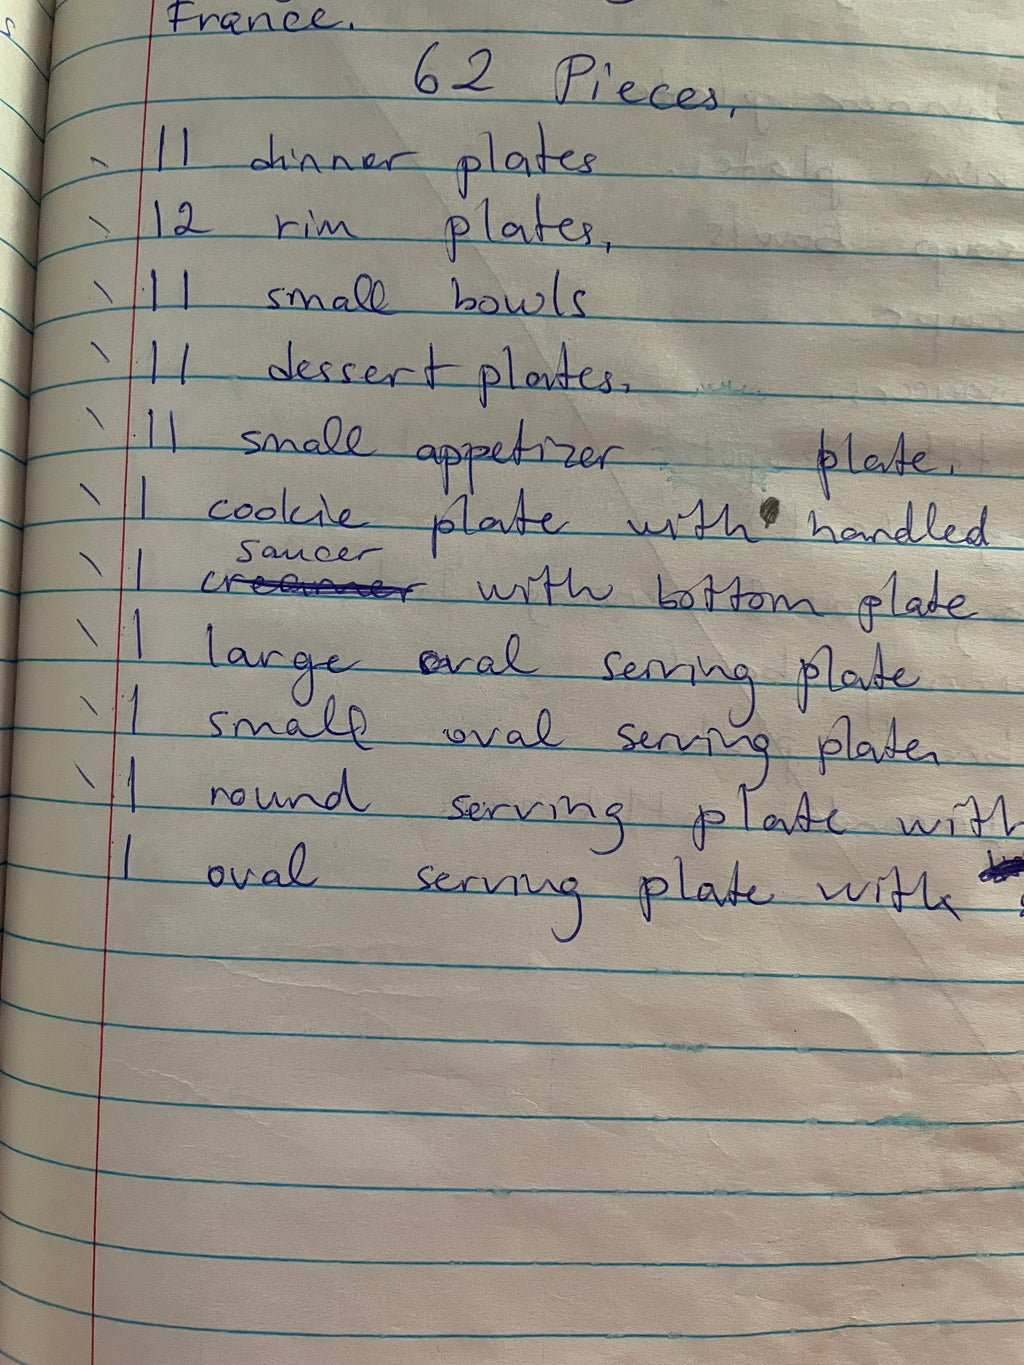 France.
62 Pieces,
11 dinner plates
12 rim plates,
11 small bowls
11 dessert plates.
11 small appetizer plate.
1 cookie plate with handled
saucer
1 creamer with bottom plate
1 large oval serving plate
1 small oval serving plate,
1 round serving plate with
1 oval serving plate with